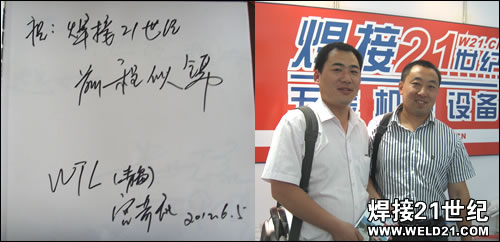 祝：焊接21世纪
前程似锦
WTL(青岛)
2012.6.5
W21.C
焊接21世纪
机 设备
.CN
焊接21世纪
WWW.WELD21.COM